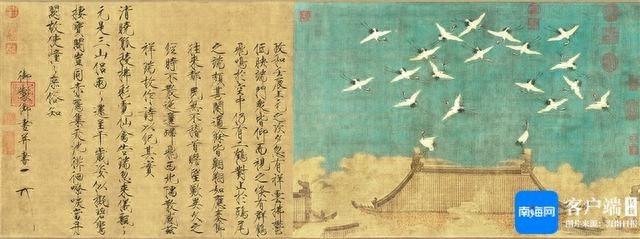 政和壬辰上元之次夕忽有祥雲拂鬱
低映端門衆皆仰而視之倏有群鶴
飛鳴於空中仍有二鶴對止於鴟尾
之端頗甚閒適餘皆翱翔如應奏節
往來都民無不稽首瞻望歎異久之
經時不散迤邐歸飛西北隅散感茲
祥瑞故作詩以紀其實
清曉觚稜拂彩霓仙禽告瑞忽來儀飄々
元是三山侶兩々還呈千歲姿似擬碧鸞
棲寶閣豈同赤鴈集天池徘徊嘹唳當丹
闕故使憧々庶俗知
御製御畫并書
南海网
客户端
图片来源：海南日报